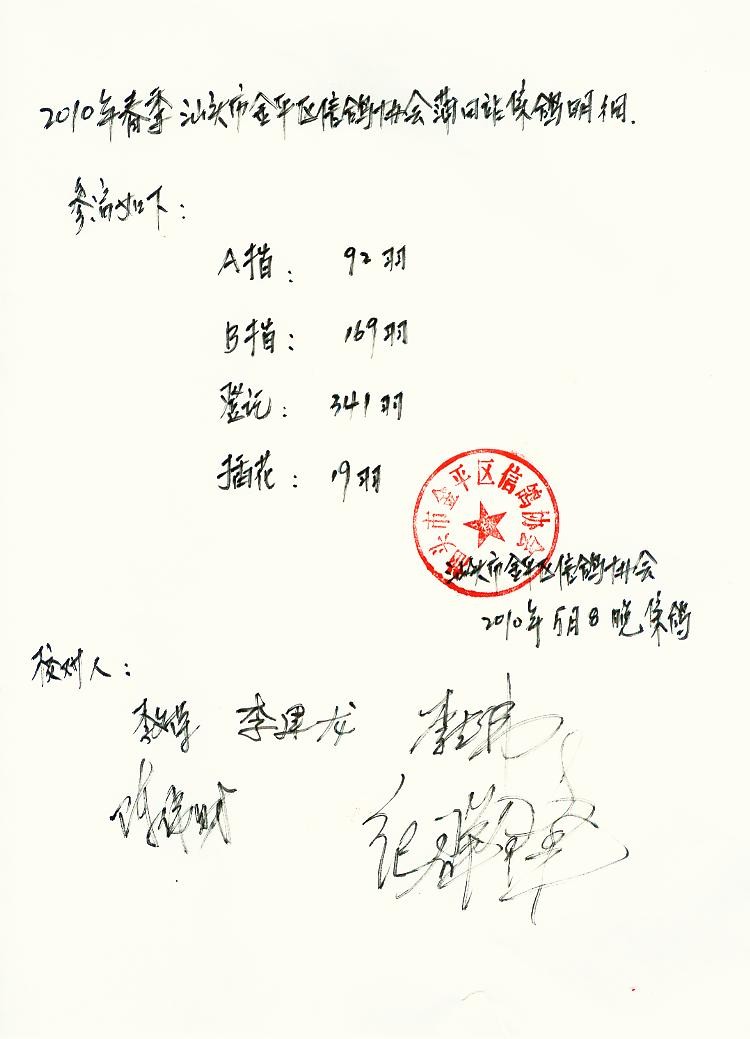 2010年春季汕头市金平区信鸽协会蒲田站集鸽明细.
参赛如下：
A指： 92羽
B指： 169羽
登记： 341羽
插花： 19羽
汕头市金平区信鸽协会
汕头市金平区信鸽协会
2010年5月8晚集鸽
校对人：
李 李 龙 李
陈 纪